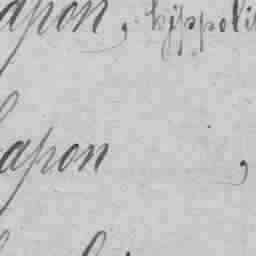 apon, hyppoli
apon ,